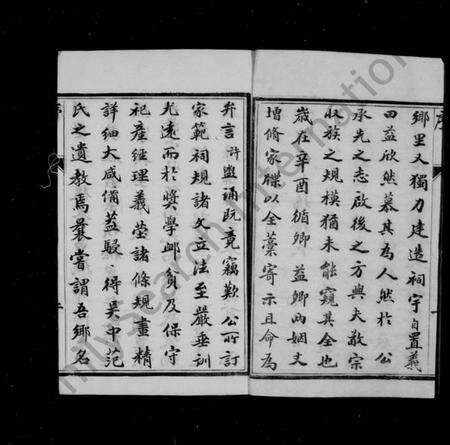 序
鄉里又獨力建造祠宇自置義
田益欣然慕其為人然於 公
承先之志啟後之方與夫敬宗
收族之規模猶未能窺其全也
歲在辛酉循卿 益卿兩姻丈
增修家牒以全藁寄示且命為
弁言 許 盥誦既竟竊歎 公所訂
家範祠規諸文立法至嚴垂訓
光遠而於獎學卹貧及保守
祀產經理義塋諸條規畫精
詳細大咸備蓋駸 得吳中范
氏之遺教焉曩嘗謂吾鄉名